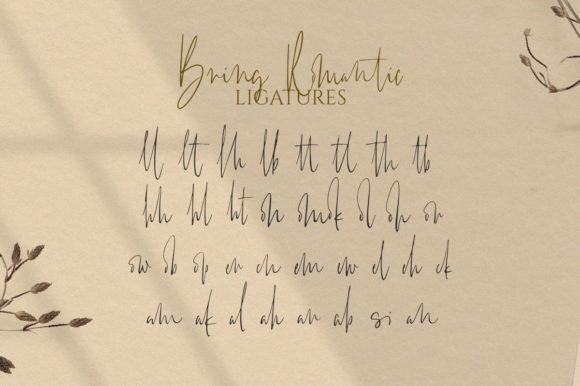 Bring Romantic
LIGATURES
ll lt lh lb tt tl th tb
hh hl ht on ol or
ow ob op en em ew el eh ek
am ak al ah an ab si